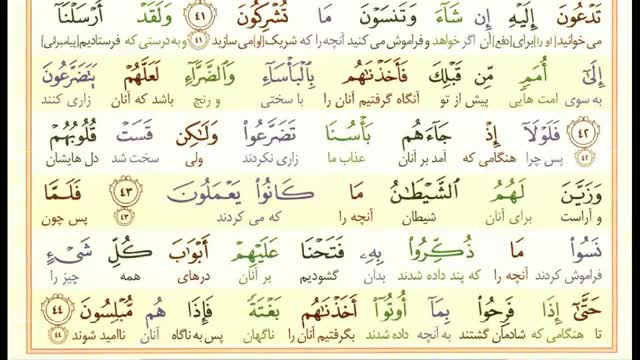 تَدْعُونَ إِلَيْهِ إِن شَآءَ وَتَنسَوْنَ مَا تُشْرِكُونَ ٤١ وَلَقَدْ أَرْسَلْنَآ
می خوانید|او را|برای|دفع|آن اگر خواهد و فراموش می کنید آنچه را که شریک|او|می سازید ٤١ و به درستی که فرستادیم|پیامبرانی|
إِلَىٰٓ أُمَمٍ مِّن قَبْلِكَ فَأَخَذْنَٰهُم بِٱلْبَأْسَآءِ وَٱلضَّرَّآءِ لَعَلَّهُمْ يَتَضَرَّعُونَ
به سوی امت هایی پیش از تو آنگاه گرفتیم آنان را با سختی و رنج باشد که آنان زاری کنند
٤٢ فَلَوْلَآ إِذْ جَآءَهُم بَأْسُنَا تَضَرَّعُوا۟ وَلَٰكِن قَسَتْ قُلُوبُهُمْ
٤٢ پس چرا هنگامی که آمد بر آنان عذاب ما زاری نکردند ولی سخت شد دل هایشان
وَزَيَّنَ لَهُمُ ٱلشَّيْطَٰنُ مَا كَانُوا۟ يَعْمَلُونَ ٤٣ فَلَمَّا
و آراست برای آنان شیطان آنچه را که می کردند ٤٣ پس چون
نَسُوا۟ مَا ذُكِّرُوا۟ بِهِۦ فَتَحْنَا عَلَيْهِمْ أَبْوَٰبَ كُلِّ شَىْءٍ
فراموش کردند آنچه را که پند داده شدند بدان گشودیم بر آنان درهای همه چیز را
حَتَّىٰٓ إِذَا فَرِحُوا۟ بِمَآ أُوتُوٓا۟ أَخَذْنَٰهُم بَغْتَةً فَإِذَا هُم مُّبْلِسُونَ ٤٤
تا هنگامی که شادمان گشتند به آنچه داده شدند بگرفتیم آنان را ناگهان پس به ناگاه آنان ناامید شوند ٤٤